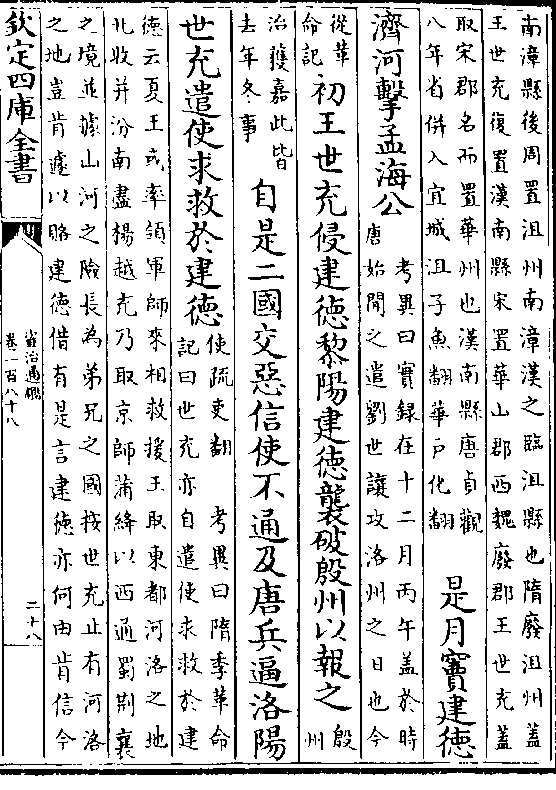 南漳縣後周置沮州南漳漢之臨沮縣也隋廢沮州蓋
王世充復置漢南縣宋置華山郡西魏廢郡王世充蓋
取宋郡名而置華州也漢南縣唐貞觀
八年省併入宜城沮子魚翻華戶化翻
是月竇建德
濟河擊孟海公
考異曰實録在十二月丙午盖於時
唐始聞之遣劉世讓攻洛州之日也今
從革
命記
初王世充侵建德黎陽建德襲破殷州以報之
殷
州
治獲嘉此皆
去年冬事
自是二國交惡信使不通及唐兵逼洛陽
世充遣使求救於建德
使疏吏翻 考異曰隋季革命
記曰世充亦自遣使求救於建
德云夏王或率領軍師來相救援王取東都河洛之地
北收并汾南盡楊越充乃取京師蒲絳以西通蜀荆襄
之境並據山河之險長為弟兄之國按世充止有河洛
之地豈肯遽以賂建德借有是言建德亦何由肯信今
欽定四庫全書
資治通鑑
卷一百八十八
二十八